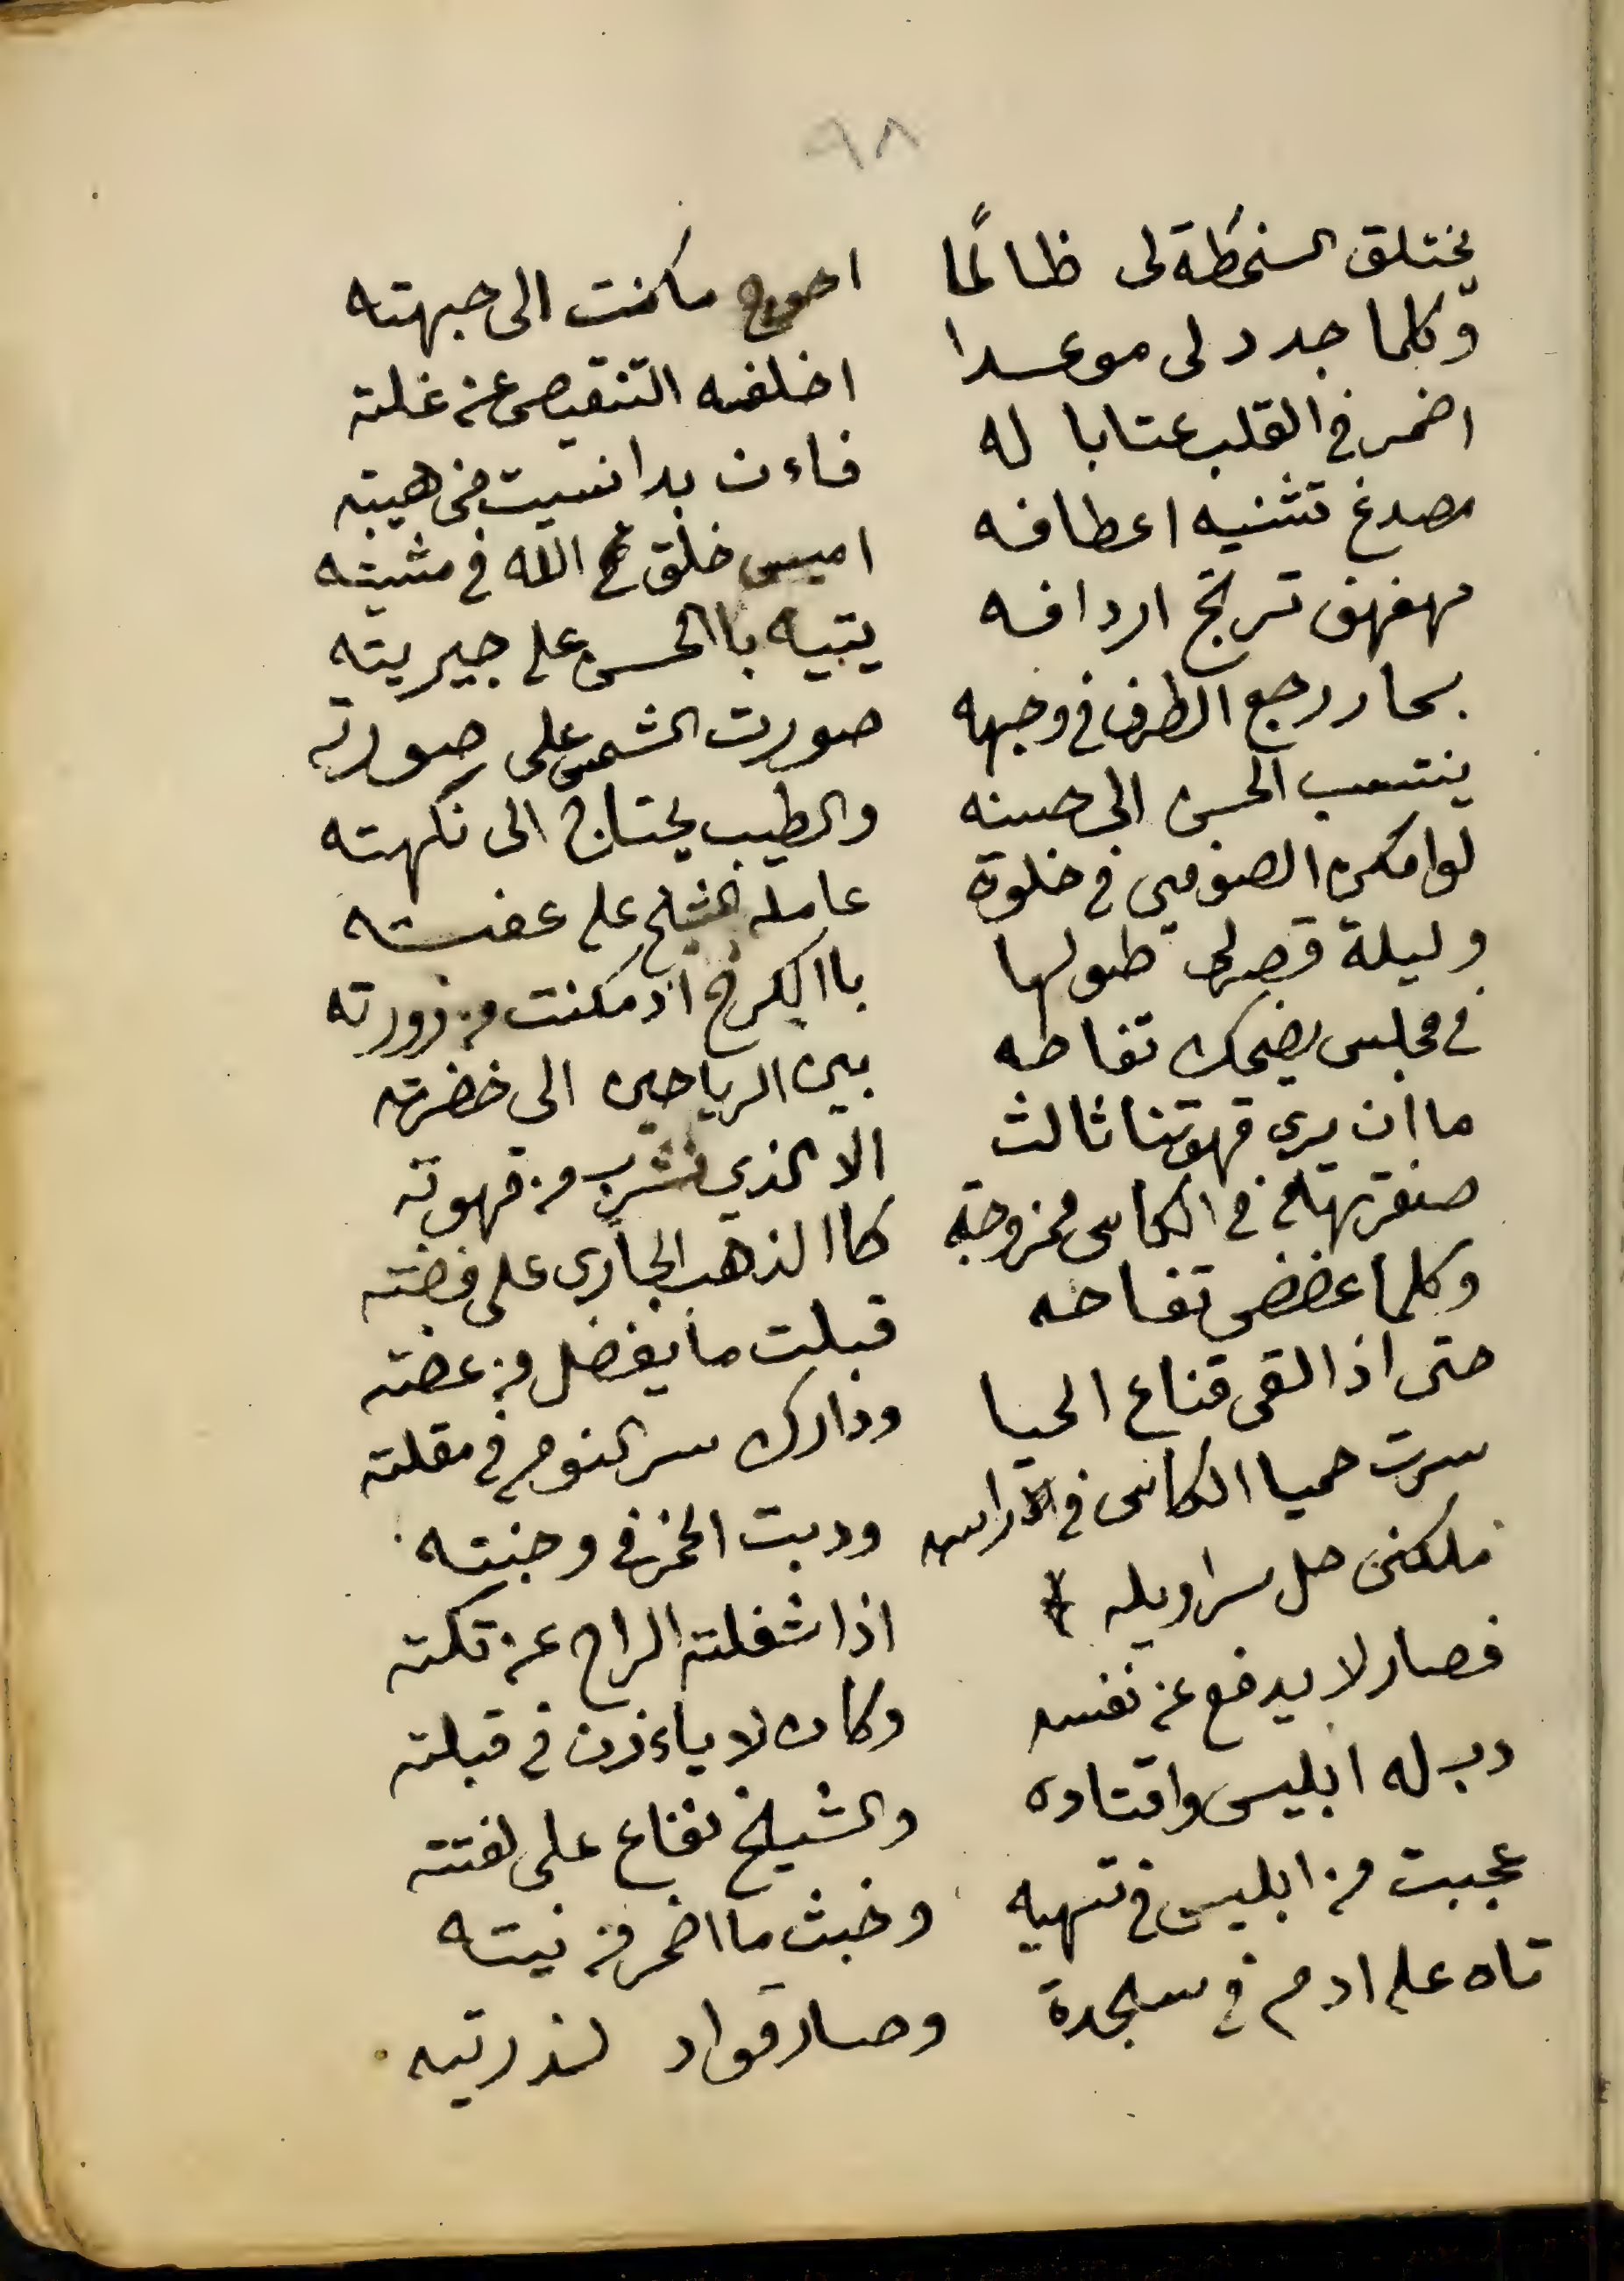 ٩٨
يختلق السخطة لى ظالمًا احوج ماكنت الى جبهته
وكلما جدد لى موعدا اخلفه التنقيص عن غلته
اضمر في القلب عتابا له فاءن بدا نسيت من هيبته
مصدغ تثنيه اعطافه اميس خلق الله في مشيته
مهفهف ترتج اردافه يتيه باالحسن على جيريته
يحار رجع الطرف في وجهه صورت الشمس على صورته
ينتسب الحسن الى حسنه والطيب يحتاج الى نكهته
لو امكن الصوفي في خلوة عامله الشيخ على عفته
وليلة قصر لى طولها باالكرخ اذ مكنت من زورته
في مجلس يضحك تفاحه بين الرياحين الى خضرته
ما ان يرى قهوتنا ثالث الا الذي نشرب من قهوته
صفرتها في الكاس ممزوجة كاالذهب الجارى على فضته
وكلما عضض تفاحه قبلت ما يفضل من عضته
حتى اذا القى قناع الحيا ودارك سر النوم في مقلته
سرت حميا الكاس في راسه ودبت الخمر في وجنته
ملكنى حل سراويله اذا شغلته الراح عن تكته
فصار لا يدفع عن نفسه وكان لا ياءذن في قبلته
دب له ابليس واقتاده والشيخ نفاع على لفتته
عجبت من ابليس في تيهه وخبث ما اضمر من نيته
تاه على ادم في سجدة وصار قواد لذرتيه